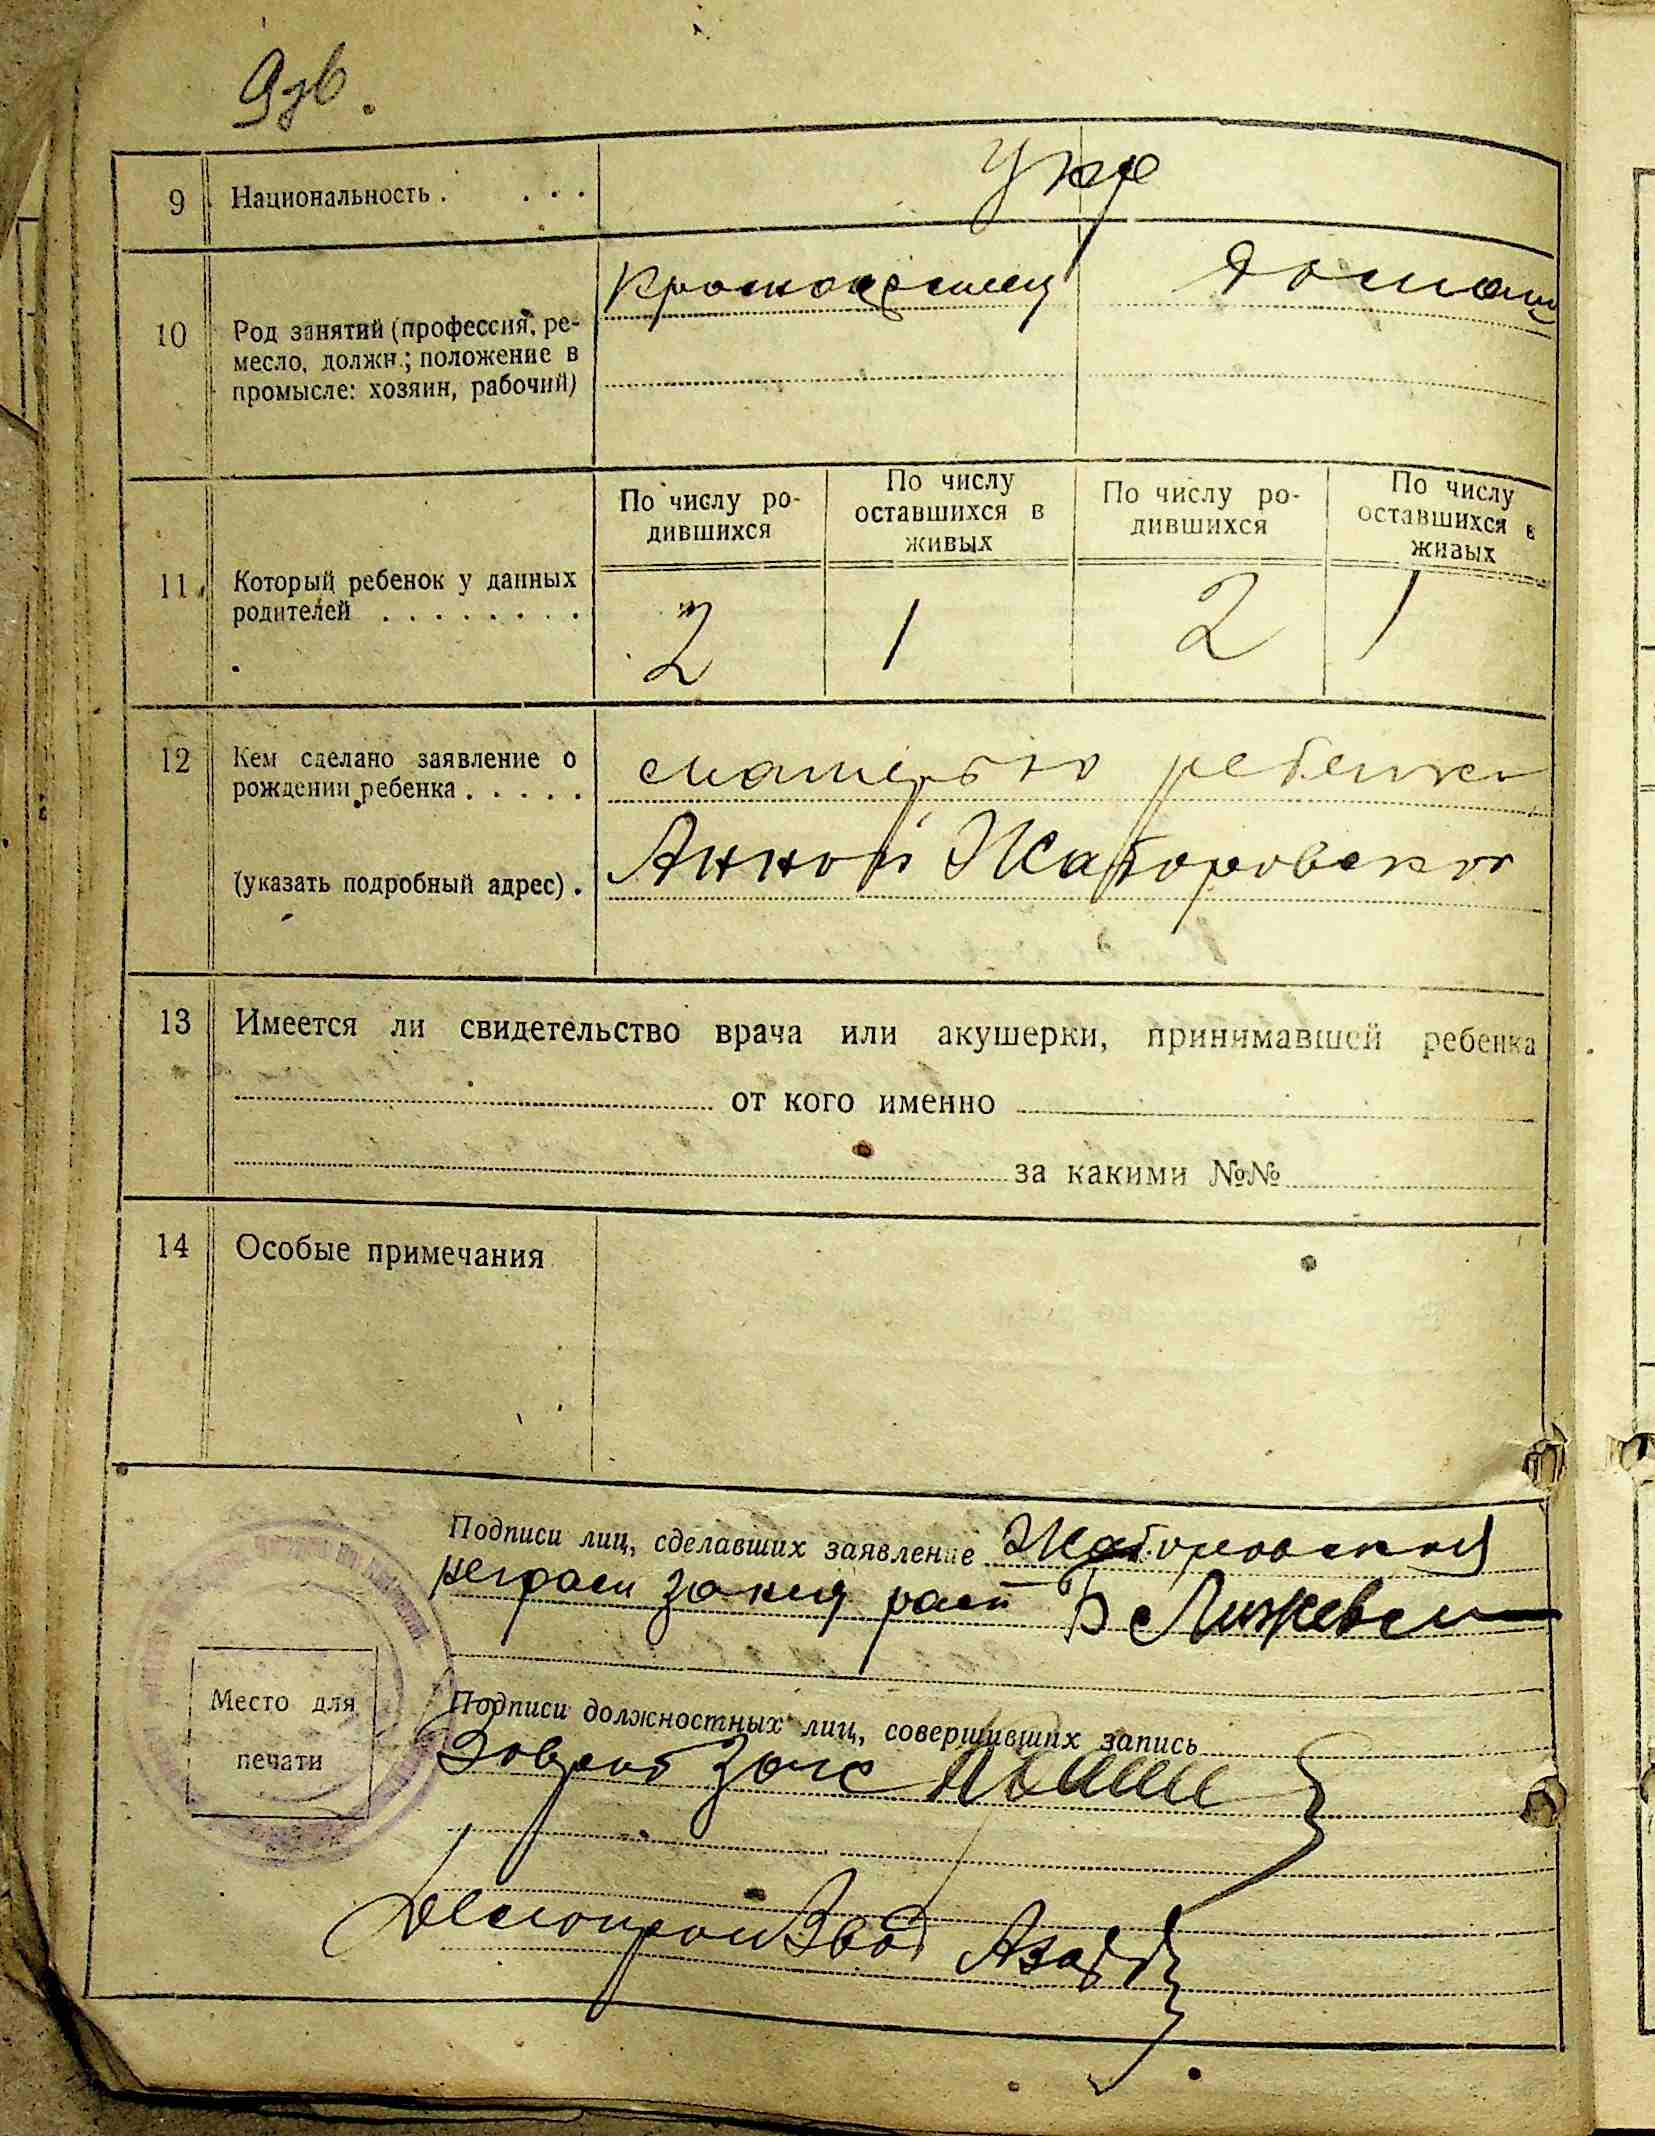 9 Национальность . . . . Укр
10 Род занятий (профессия, ре-
месло, должн.; положение в
промысле: хозяин, рабочий)
Домаш
11 Который ребенок у данных
родителей . . . . . . . .
По числу ро-
дившихся
По числу
оставшихся в
живых
По числу ро-
дившихся
По числу
оставшихся в
живых
2 1 2 1
12 Кем сделано заявление о
рождении ребенка . . . . .
(указать подробный адрес) .
матерью ребенка
Анной Жаборовской
13 Имеется ли свидетельство врача или акушерки, принимавшей ребенка
от кого именно
за какими №№
14 Особые примечания
Подписи лиц, сделавших заявление Жаборовская
неграм за нея расп
Место для
печати
Подписи должностных лиц, совершивших запись
Загс
Делопроизвод